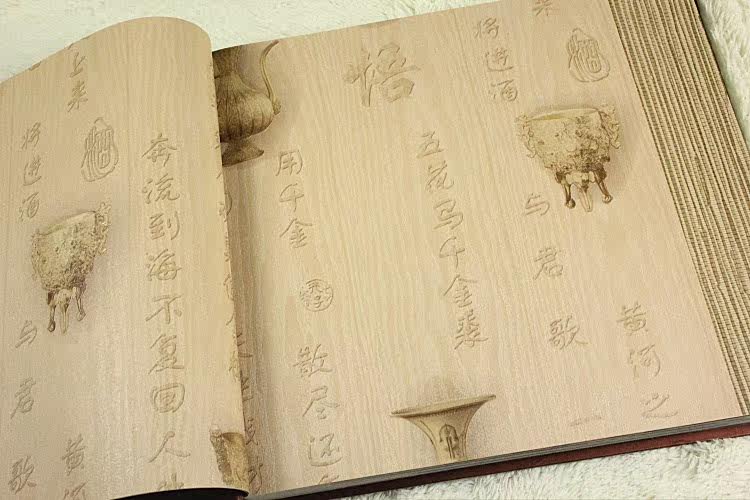 上来
将进酒
与君歌
黄河
奔流到海不复回人
悟
用千金
散尽还
五花马千金裘
将进酒
与君歌
黄河之